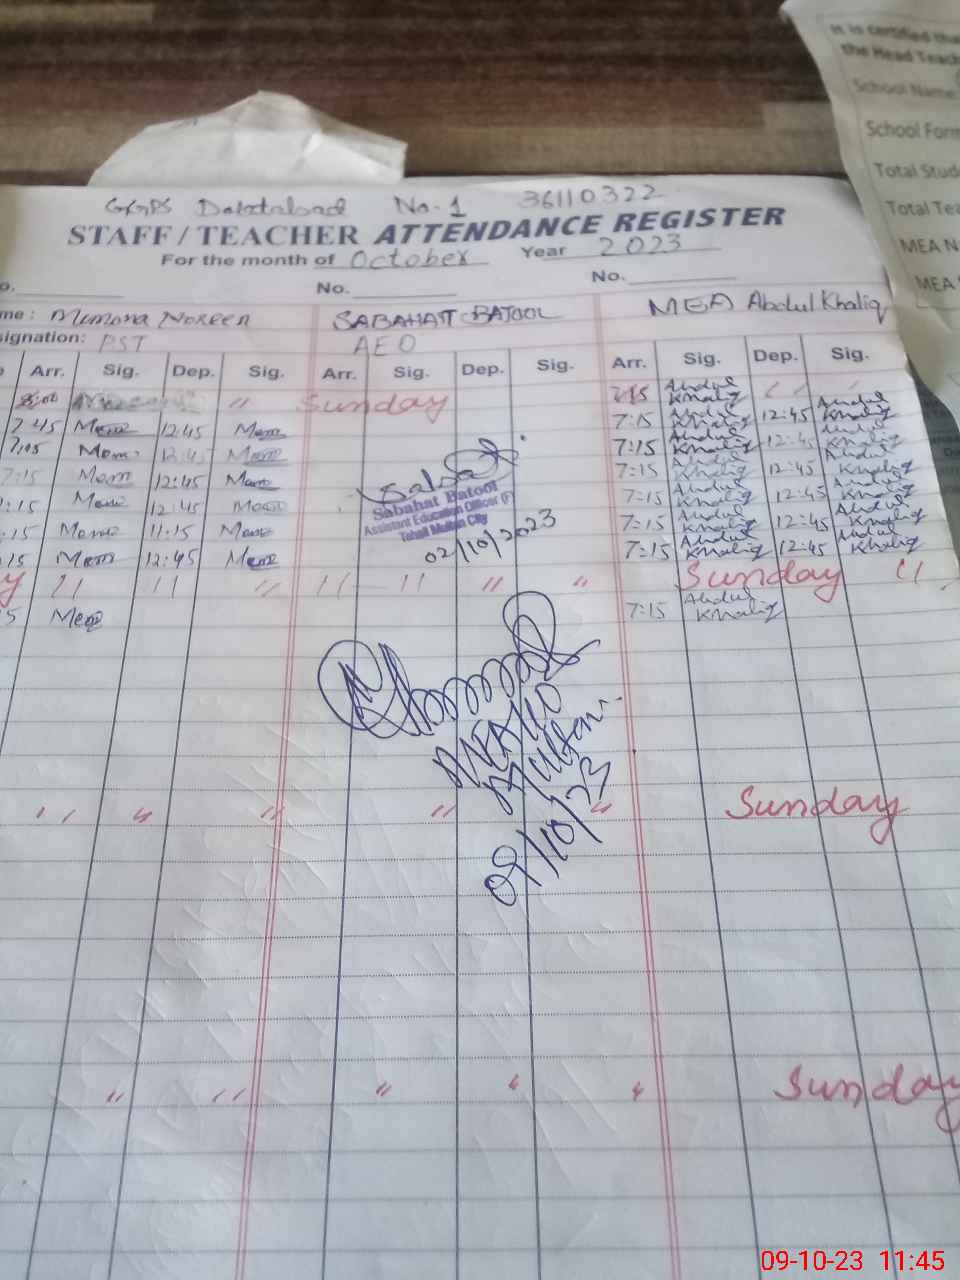 It is certified tha
the Head Teach
School Name
School Form
Total Stude
Total Tea
MEA N
MEA
No. 1 36110322
STAFF / TEACHER ATTENDANCE REGISTER
For the month of October Year 2023
o. No. No.
me: Mimona Noreen SABAHAT BATOOL MEA Abdul Khaliq
signation: PST AEO
Arr. Sig. Dep. Sig. Arr. Sig. Dep. Sig. Arr. Sig. Dep. Sig.
8:00 " Sunday 7:15 Abdul Khaliq
7:45 Mem 12:45 Mem 7:15 Abdul Khaliq 12:45 Abdul Khaliq
7:05 Mem 12:45 Mem 7:15 Abdul Khaliq 12:45 Abdul Khaliq
7:15 Mem 12:45 Mem 7:15 Abdul Khaliq 12:45 Abdul Khaliq
:15 Mem 12:45 Mem 7:15 Abdul Khaliq 12:45 Abdul Khaliq
:15 Mem 11:15 Mem 7:15 Abdul Khaliq 12:45 Abdul Khaliq
15 Mem 12:45 Mem 7:15 Abdul Khaliq 12:45 Abdul Khaliq
Sabahat Batool
Assistant Education Officer (F)
Tehsil Multan City
02/10/2023
y " " " " " " " Sunday "
5 Mem 7:15 Abdul Khaliq
MEA/10
Multan
09/10/23
" " " " " Sunday
" " " " " Sunday
09-10-23 11:45